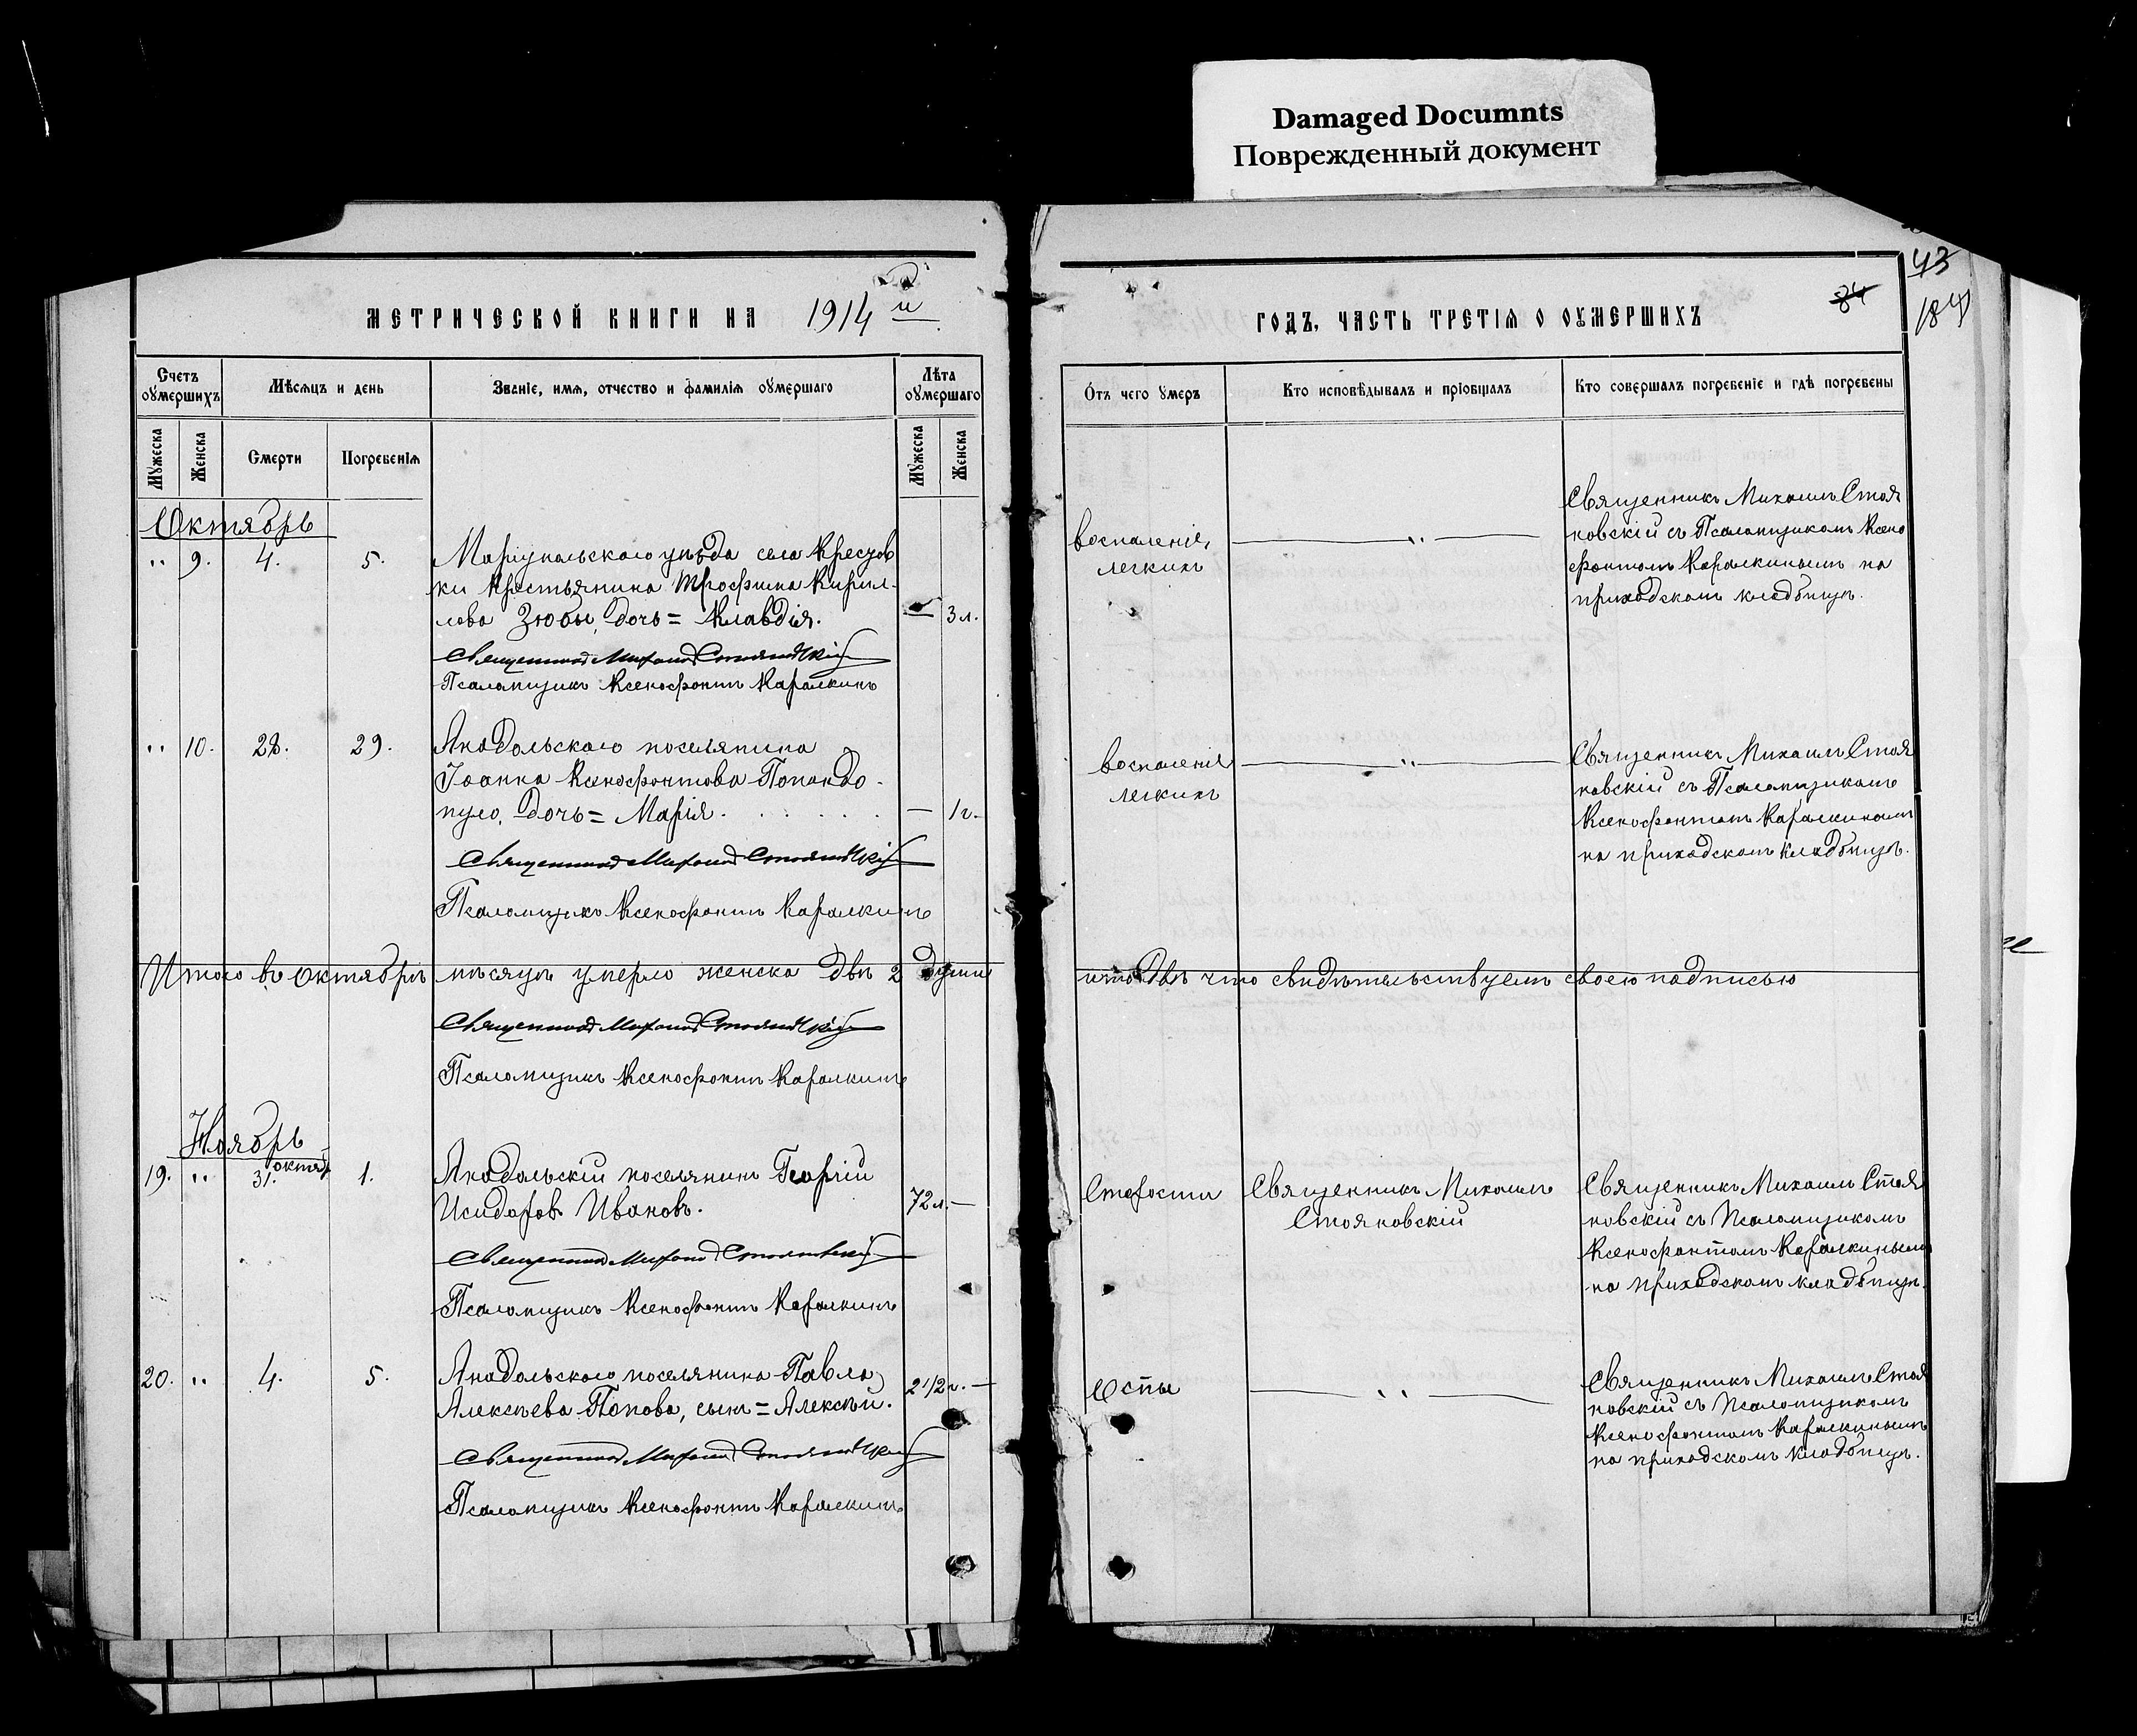 Damaged Documnts
Поврежденный документ
МЕТРИЧЕСКОЙ КНИГИ НА 1914 й
Счетъ оумершихъ
Мѣсяцъ и день
Званіе, имя, отчество и фамилія оумершаго
Лѣта оумершаго
Мужеска
Женска
Смерти
Погребенія
Мужеска
Женска
Октябрь
" 9. 4. 5. Маріупольскаго уѣзда села Кресов
ки крестьянина Трофима Кирил-
лова Зюбы, дочь = Клавдія. — 3 л.
Священник Михаил Стояновскій
Псаломщикъ Ксенофонтъ Каралкинъ
" 10. 28. 29. Анадольскаго поселянина
Іоанна Ксенофонтова Попандо-
пуло, дочь = Марія. — 1 г.
Священник Михаил Стояновскій
Псаломщикъ Ксенофонтъ Каралкинъ
Итого въ октябрѣ мѣсяцѣ умерло женска двѣ 2 души
Священник Михаил Стояновскій
Псаломщикъ Ксенофонтъ Каралкинъ
Ноябрь
19. " 31. октяб 1. Анадольскій поселянинъ Георгій
Исидоровъ Ивановъ. 72 л. —
Священник Михаил Стояновскій
Псаломщикъ Ксенофонтъ Каралкинъ
20. " 4. 5. Анадольскаго поселянина Павла
Алексѣева Попова, сынъ = Алексѣй. 2 1/2 г. —
Священник Михаил Стояновскій
Псаломщикъ Ксенофонтъ Каралкинъ
43
84
184
ГОДЪ, ЧАСТЬ ТРЕТІЯ О ОУМЕРШИХЪ
Отъ чего умеръ
Кто исповѣдывалъ и пріобщалъ
Кто совершалъ погребеніе и гдѣ погребены
воспаленія
легкихъ
— " —
Священникъ Михаилъ Стоя
новскій съ Псаломщикомъ Ксено
фонтомъ Каралкинымъ на
приходскомъ кладбищѣ.
воспаленія
легкихъ
— " —
Священникъ Михаилъ Стоя
новскій съ Псаломщикомъ
Ксенофонтомъ Каралкинымъ
на приходскомъ кладбищѣ.
двѣ что свидѣтельствуемъ своею подписью
Старости
Священникъ Михаилъ
Стояновскій
Священникъ Михаилъ Стоя
новскій съ Псаломщикомъ
Ксенофонтомъ Каралкинымъ
на приходскомъ кладбищѣ.
Оспы
— " —
Священникъ Михаилъ Стоя
новскій съ Псаломщикомъ
Ксенофонтомъ Каралкинымъ
на приходскомъ кладбищѣ.